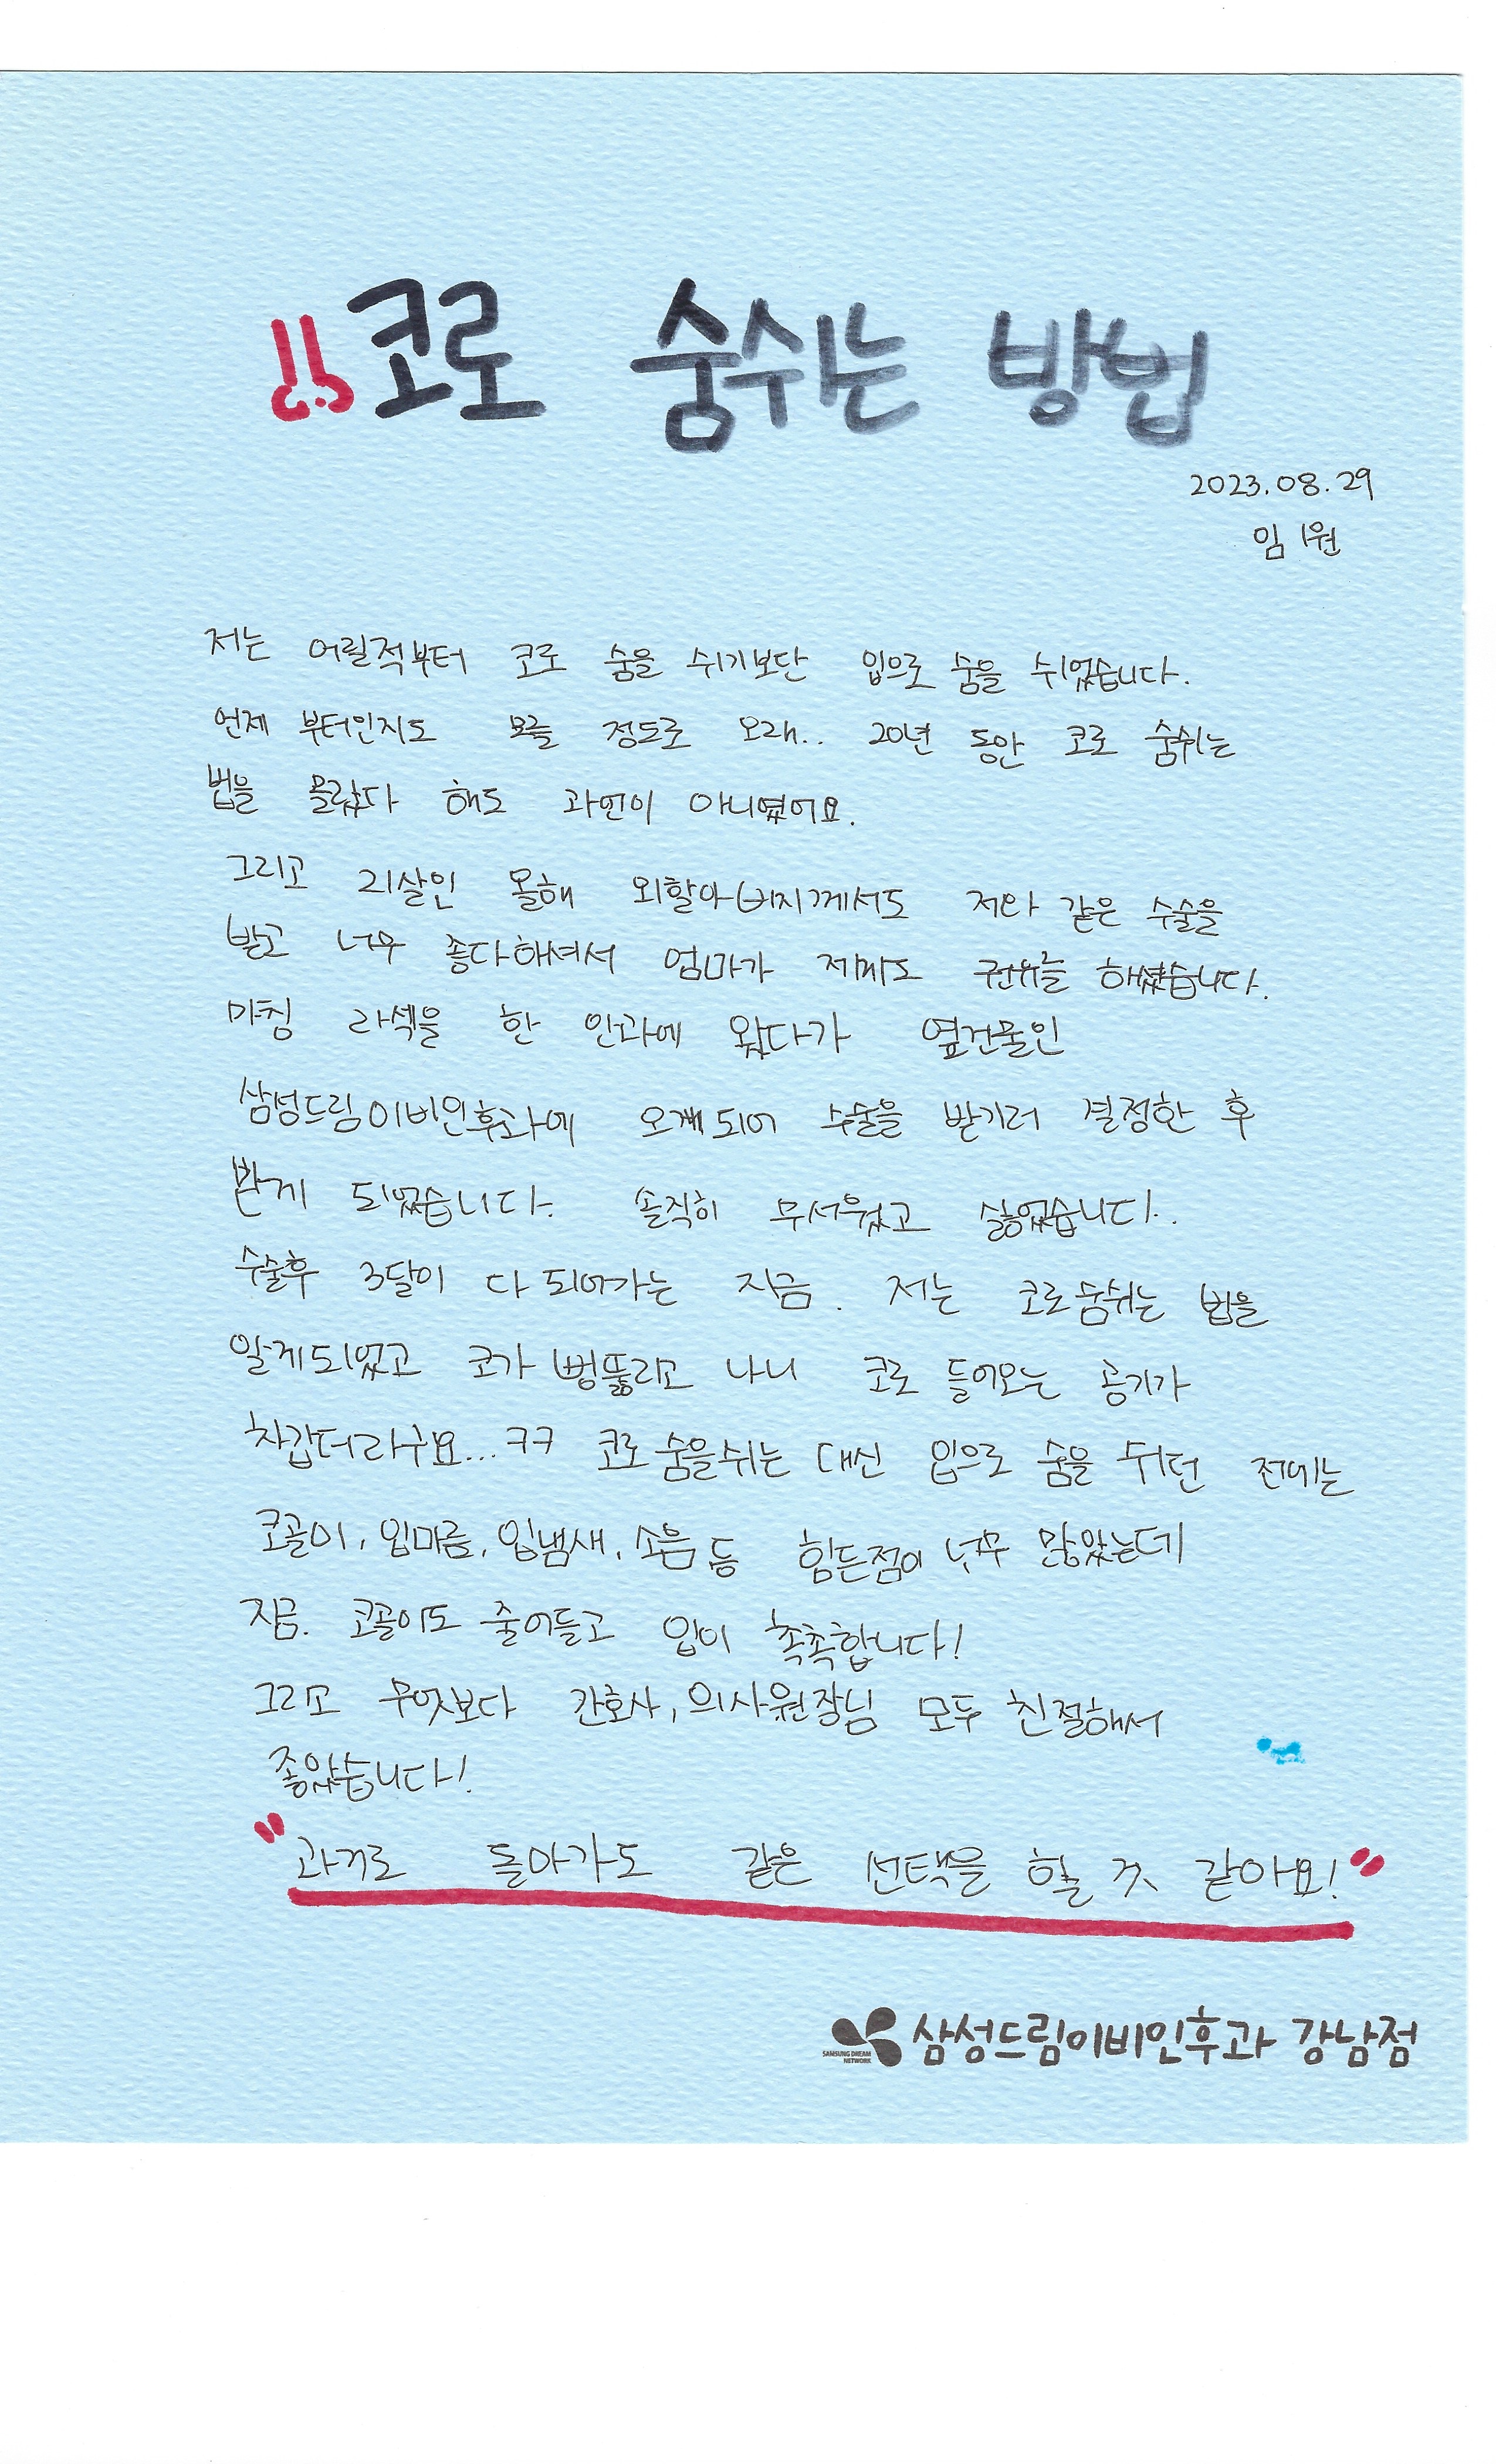 코로 숨쉬는 방법
2023.08.29
임 원
저는 어릴적부터 코로 숨을 쉬기보단 입으로 숨을 쉬었습니다.
언제 부터인지도 모를 정도로 오래.. 20년 동안 코로 숨쉬는
법을 몰랐다 해도 과언이 아니였어요.
그리고 21살인 올해 외할아버지께서도 저와 같은 수술을
받고 너무 좋다하셔서 엄마가 제게도 권유를 해셨습니다.
마침 라섹을 한 안과에 왔다가 옆건물인
삼성드림이비인후과에 오게되어 수술을 받기러 결정한 후
받게 되었습니다. 솔직히 무서웠고 싫었습니다.
수술후 3달이 다 되어가는 지금. 저는 코로숨쉬는 법을
알게되었고 코가 뻥뚫리고 나니 코로 들어오는 공기가
차갑더라구요...ㅋㅋ 코로 숨을쉬는 대신 입으로 숨을 쉬던 전에는
코골이, 입마름, 입냄새, 소음 등 힘든점이 너무 많았는데
지금. 코골이도 줄어들고 입이 촉촉합니다!
그리고 무엇보다 간호사, 의사원장님 모두 친절해서
좋았습니다!
"과거로 돌아가도 같은 선택을 할 것 같아요!"
SAMSUNG DREAM
NETWORK
삼성드림이비인후과 강남점